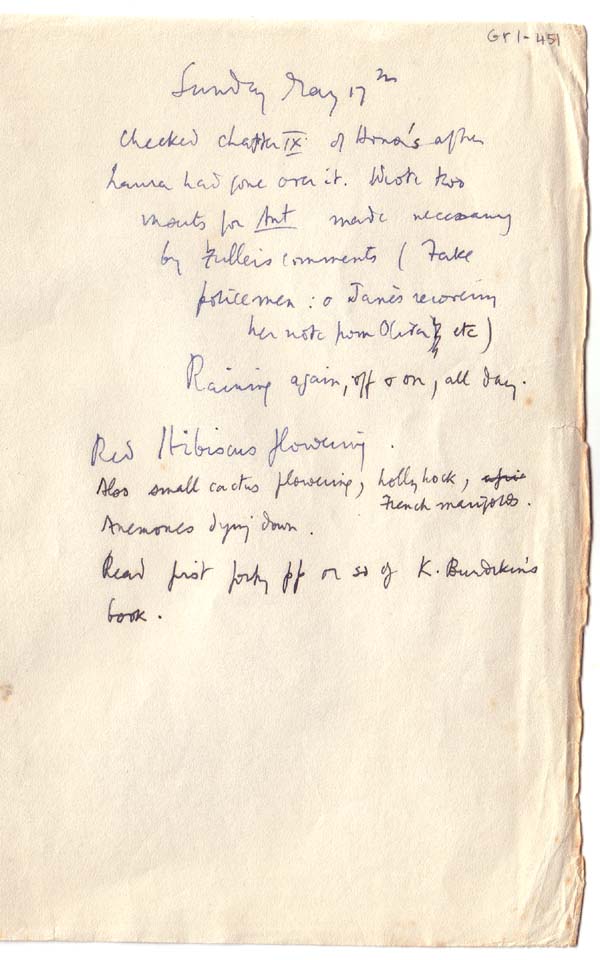 Gr 1-451
Sunday May 17th
Checked chapter IX of Anna's after
Laura had gone over it. Wrote two
inserts for Ant made necessary
by Fuller's comments ( Fake
policemen : & Jane's recovering
her note from etc )
Raining again, off & on, all day.
Red Hibiscus flowering.
Also small cactus flowering, hollyhock,
French marigolds.
Anemones dying down.
Read first forty pp or so of K. Burdekin's
book.